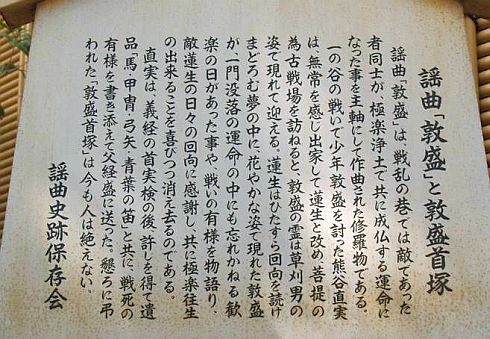 謡曲「敦盛」と敦盛首塚
謡曲「敦盛」は、戦乱の巷ては敵であった
者同士が、極楽浄土で共に成仏する運命に
なった事を主軸にして作曲された修羅物である。
一の谷の戦いで少年敦盛を討った熊谷直実
は、無常を感じ出家して蓮生と改め、菩提の
為古戦場を訪ねると、敦盛の霊は草刈男の
姿て現れて迎える。蓮生はひたすら回向を続け
まどろむ夢の中に、花やかな姿で現れた敦盛
が一門没落の運命の中にも忘れかねる歓
楽の日があった事や、戦いの有様を物語り、
敵蓮生の日々の回向に感謝し、共に極楽往生
の出来ることを喜びつつ消え去るのである。
直実は、義経の首実検の後、許しを得て遺
品「馬・甲冑・弓矢・青葉の笛」と共に、戦死の
有様を書き添えて父経盛に送った。懇ろに弔
われた「敦盛首塚」は今も人は絶えない。
謡曲史跡保存会